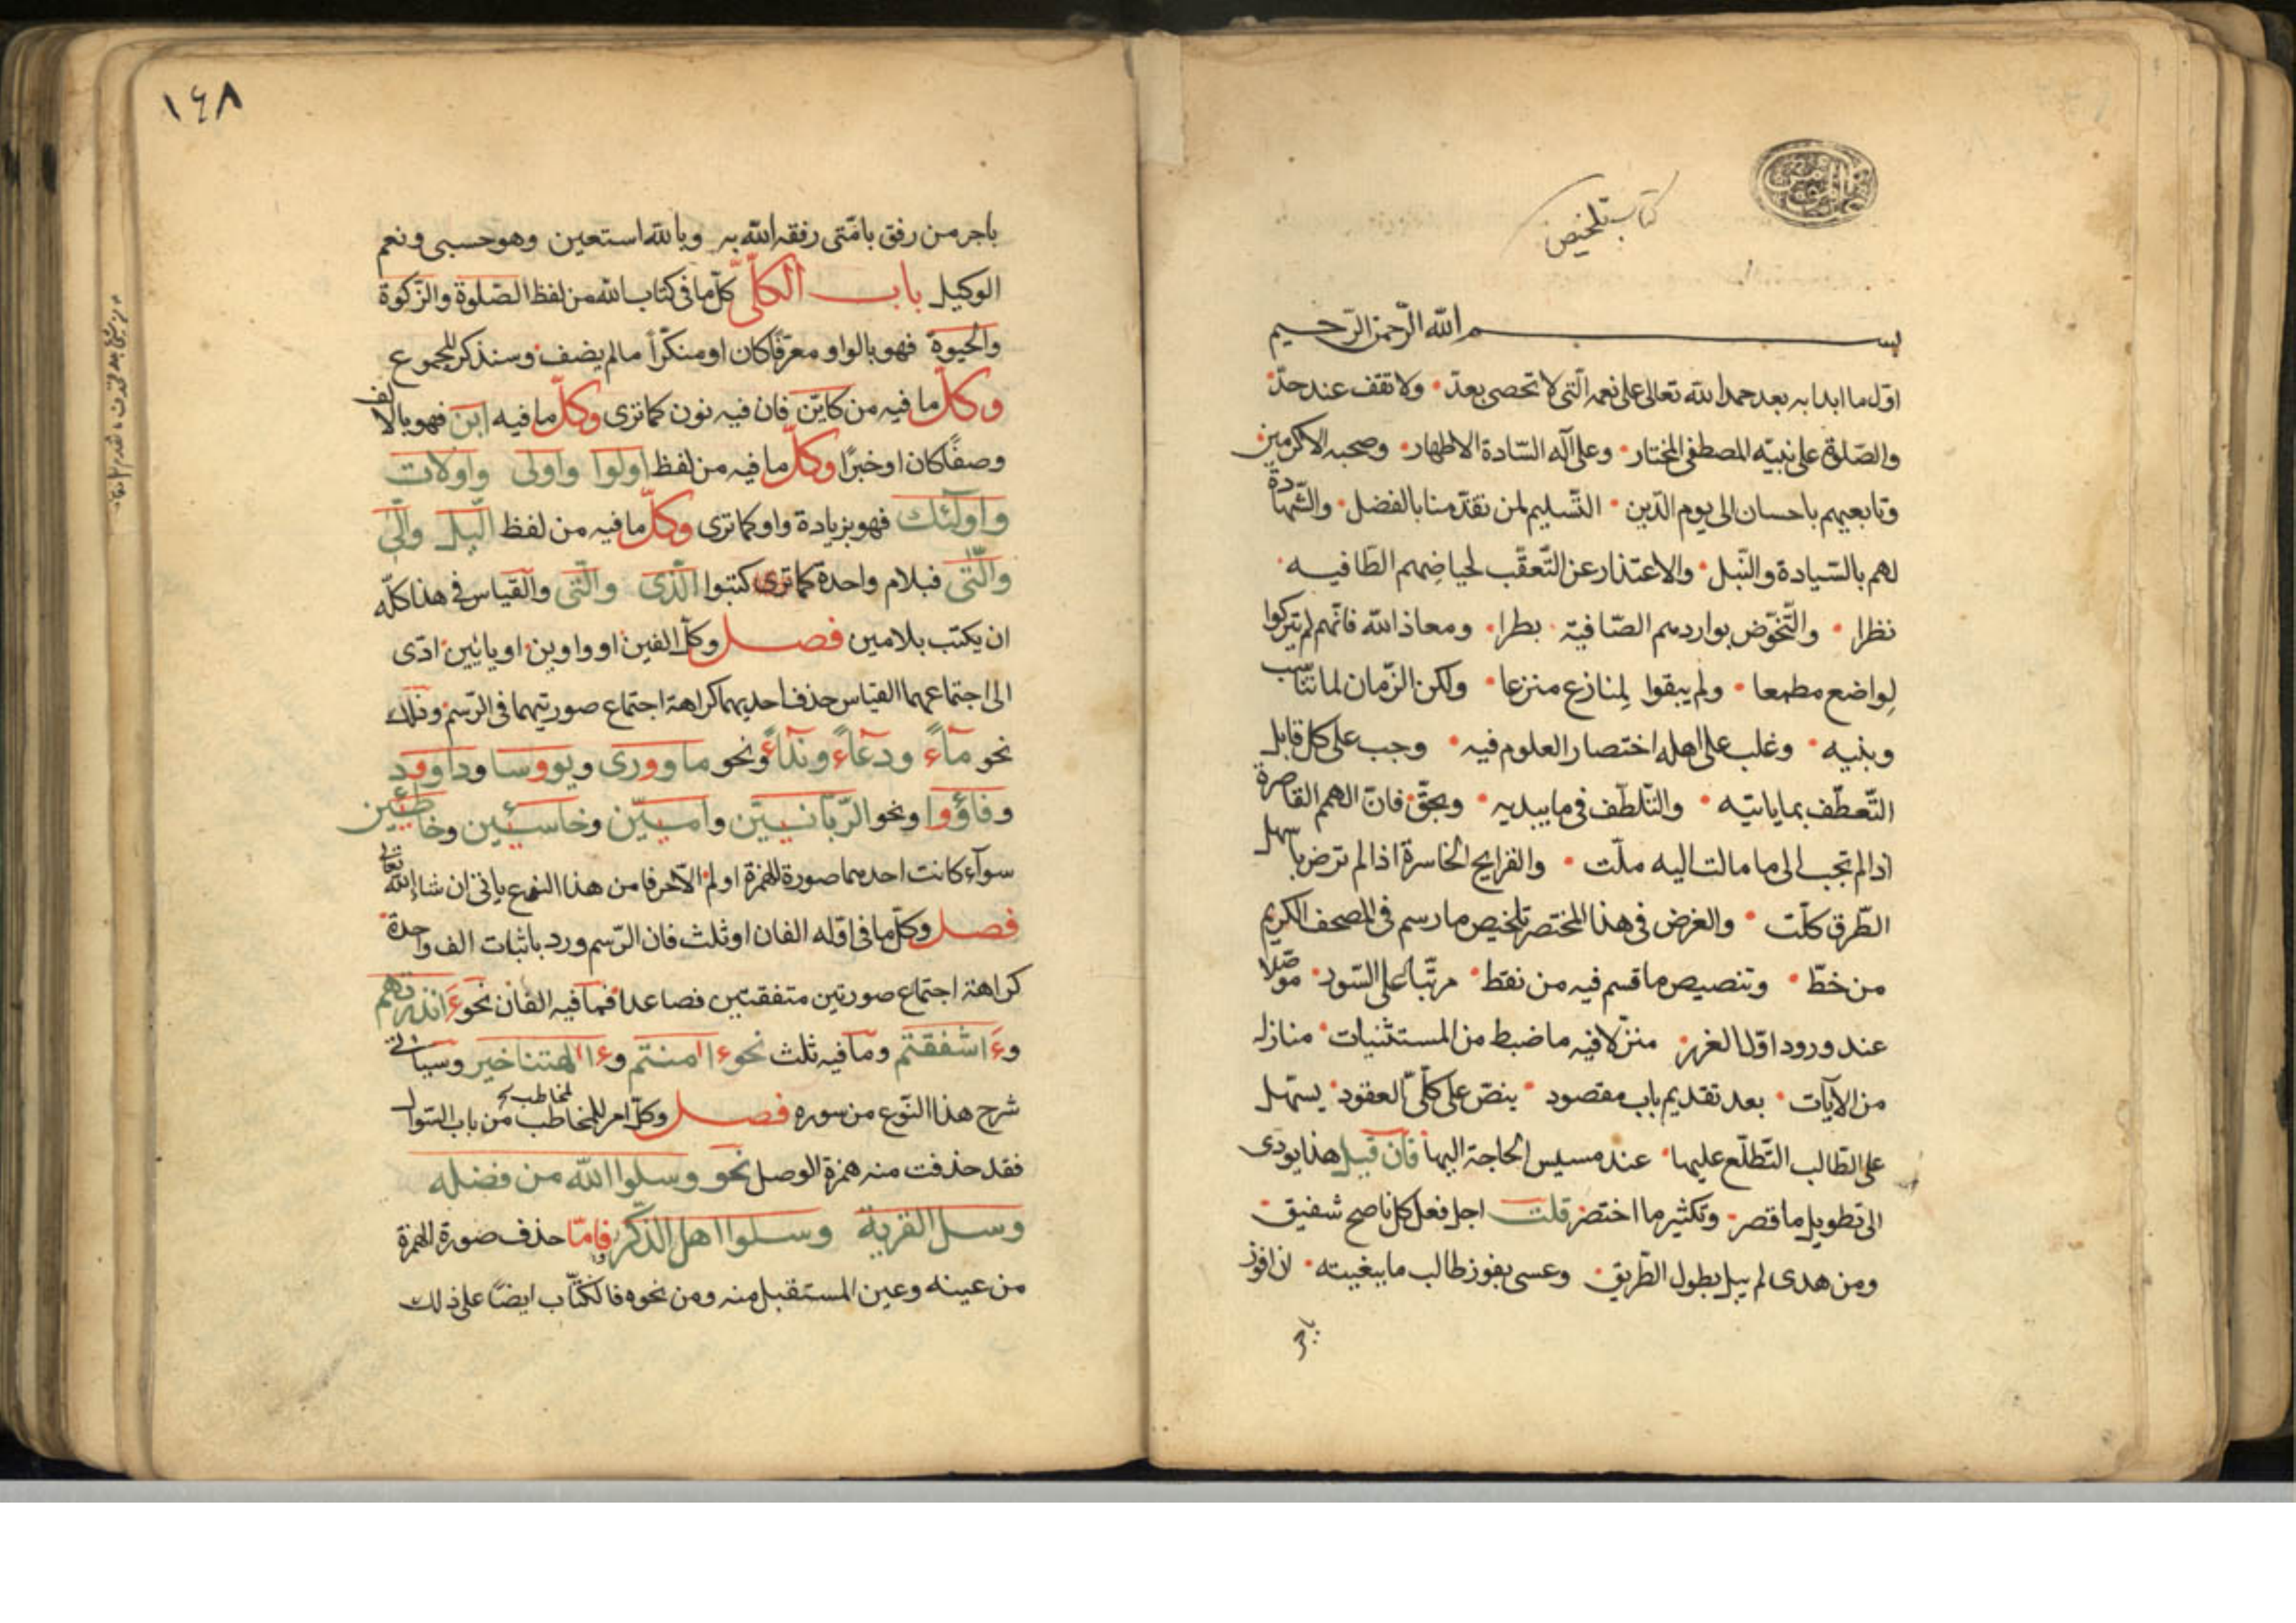 كتاب تلخيص
بسم الله الرحمن الرحيم
اول ما ابدا به بعد حمد الله تعالى على نعمه الّتى لا تحصى بعدّ ولا تقف عند حدّ
والصّلوة على نبيّه المصطفى المختار وعلى آله السّادة الاطهار وصحبه الاكرمين
وتابعيهم باحسان الى يوم الدّين التّسليم لمن تقدّمنا بالفضل والشّهادة
لهم بالسّيادة والنّبل والاعتذار عن التّعقّب لحياضهم الطّافيه
نظرا والتّخوّض بمواردهم الصّافية بطرا ومعاذ الله فانّهم لم يتركوا
لِواضع مطمعا ولم يبقوا لِمنازع منزعا ولكن الزّمان لما تناسب
وبنيه وغلب على اهله اختصار العلوم فيه وجب على كل قابل
التّعطّف بما ياتيه والتّلطّف فى ما يبديه وبحقّ فانّ الهمم القاصرة
اذا لم تجب الى ما مالت اليه ملّت والقرايح الخاسرة اذا لم ترض باسهل
الطّرق كلّت والغرض فى هذا المختصر تلخيص ما رسم فى المصحف الكريم
من خطّ وتنصيص ما قسم فيه من نقط مرتّبا على السّور موصّلا
عند ورود اوّل الغرر منزّلا فيه ما ضبط من المستثنيات منازله
من الآيات بعد تقديم باب مقصود ينصّ على كلّىّ العقود يسهل
على الطّالب التّطلّع عليها عند مسيس الحاجة اليها فان قيل هذا يودى
الى تطويل ما قصر وتكثير ما اختصر قلت اجل فعل كل ناصح شفيق
ومن هدى لم يبل بطول الطّريق وعسى يفوز طالب ما ببغيته لافوز
١٤٨
باجر من رفق بامّتى رفقه الله به وبالله استعين وهو حسبى ونعم
الوكيل باب الكلّىّ كلّ ما فى كتاب الله من لفظ الصّلوة والزّكوة
والحيوة فهو بالواو معرّفا كان او منكّرا ما لم يضف وسنذكر المجموع
وكلّ ما فيه من كايّن فان فيه نون كما ترى وكلّ ما فيه ابن فهو بالالف
وصفًا كان او خبرًا وكلّ ما فيه من لفظ اولوا واولى واولات
واولٰئك فهو بزيادة واو كما ترى وكلّ ما فيه من لفظ الّيل والّئ
والّتى فبلام واحدة كما ترى كتبوا الّذى والّتى والقياس فى هذا كلّه
ان يكتب بلامين فصل وكلّ الفين او واوين او يائين ادّى
الى اجتماعهما القياس حذف احديهما كراهة اجتماع صورتيهما فى الرّسم وذلك
نحو مآءً ودعآءً وندآءً ونحو ما وورى ويووسا وداوود
وفاؤوا ونحو الرّبّانيّين وامّيّين وخاسئين وخاطئين
سوآء كانت احدهما صورة للهمزة او لم الآخر فا من هذا النوع ياتى ان شاء الله تعالى
فصل وكلّ ما فى اوّله الفان او ثلث فان الرّسم ورد باثبات الف واحدة
كراهة اجتماع صورتين متفقتين فصاعدا فما فيه الفان نحو ءَانذرتهم
وءَاشفقتم وما فيه ثلث نحو ءاامنتم وءاالهتنا خير وسياتى
شرح هذا النّوع من سوره فصل وكلّ امر للمخاطب من باب السّوال
فقد حذفت منه همزة الوصل نحو وسلوا الله من فضله
وسل القرية وسلوا اهل الذّكر فامّا حذف صورة الهمزة
من عينه وعين المستقبل منه ومن نحوه فالكتّاب ايضًا على ذلك